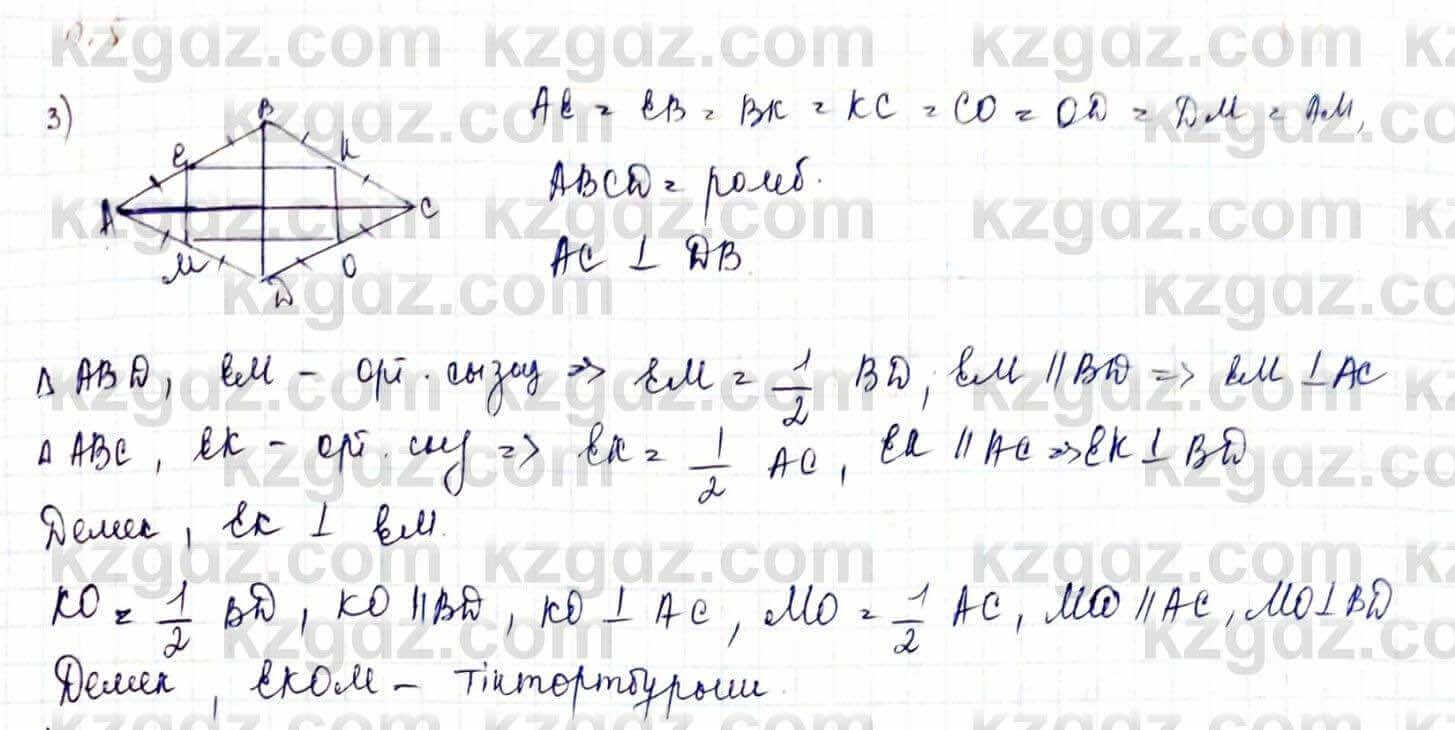 3)
AE = EB = BK = KC = CO = OD = DM = AM,
ABCD = ромб.
AC ⊥ DB
B
E K
A C
M O
D
Δ ABD, EM – орт. сызық => EM = 1/2 BD, EM || BD => EM ⊥ AC
Δ ABC, EK – орт. сыз => EK = 1/2 AC, EK || AC => EK ⊥ BD
Демек, EK ⊥ EM.
KO = 1/2 BD, KO || BD, KO ⊥ AC, MO = 1/2 AC, MO || AC, MO ⊥ BD
Демек, EKOM – тіктөртбұрыш.
kzgdz.com